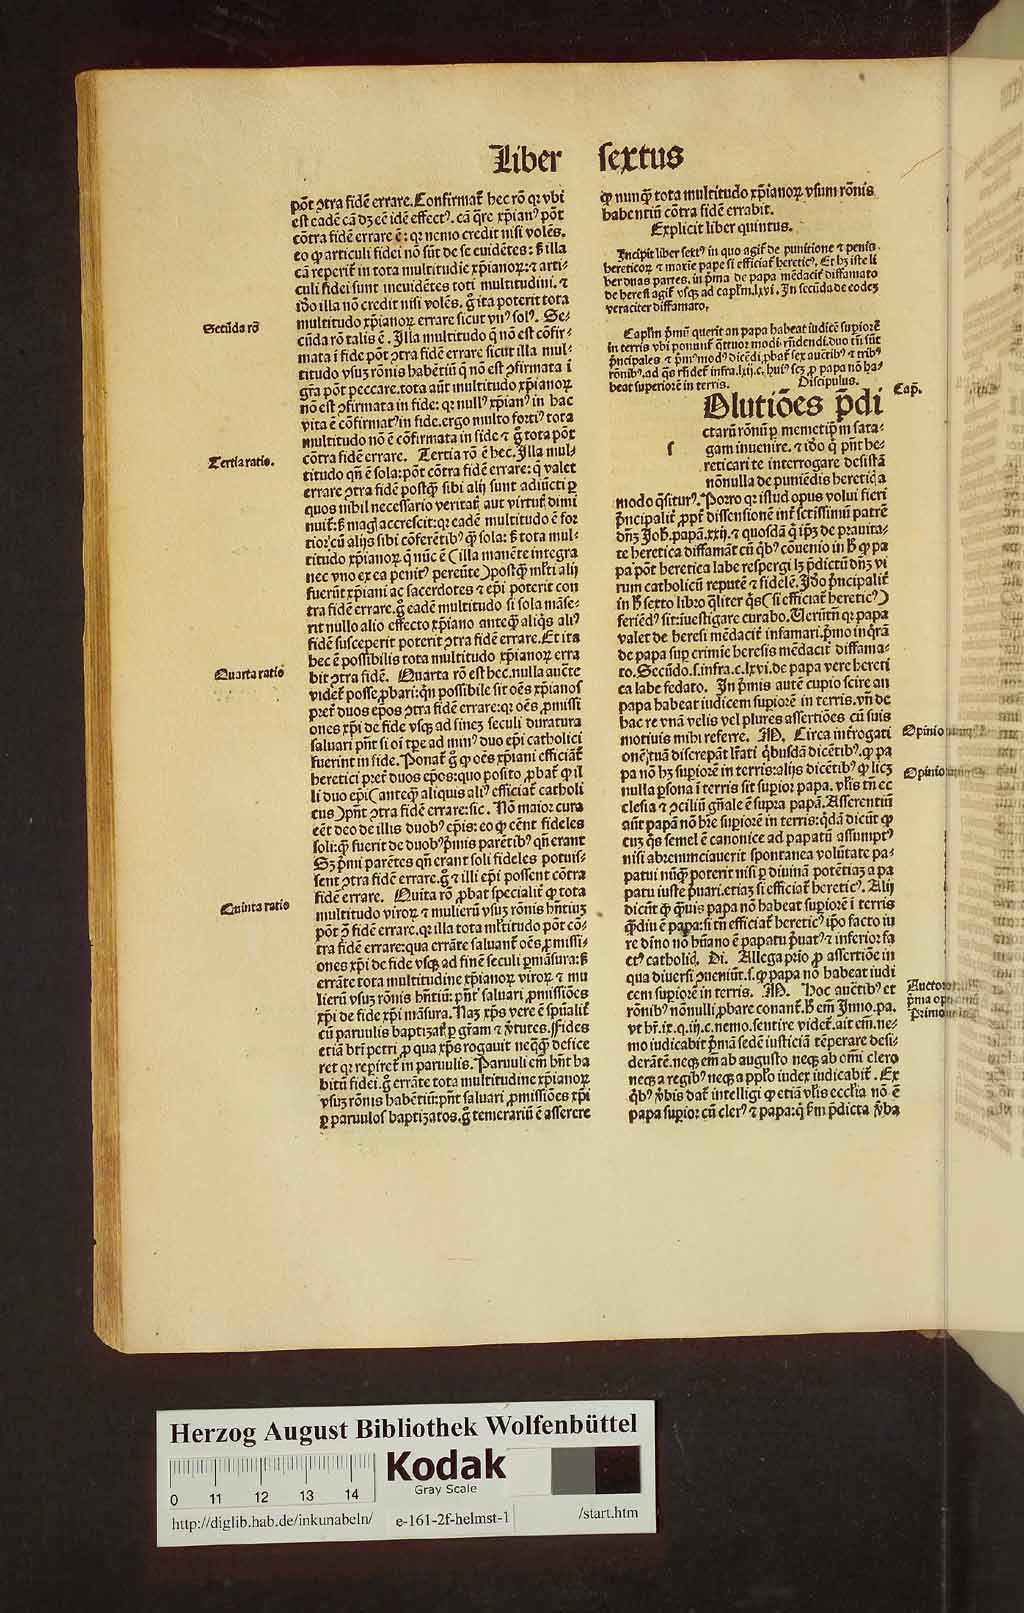 Liber sextus
põt ɔtra fidē errare. Confirmat̄ hec rō qꝛ vbi
est eadē cā dꝫ eē idē effectꝰ. cā q̄re xp̄ianꝰ põt
cōtra fidē errare ē: qꝛ nemo credit nisi volēs.
eo ꝙ articuli fidei nō sūt de se euidētes: ß illa
cā reperit̄ in tota multitudīe xp̄ianoꝝ: ⁊ arti-
culi fidei sunt ineuidētes toti multitudini. ⁊
iđo illa nō credit nisi volēs. g̊ ita poterit tota
multitudo xp̄ianoꝝ errare sicut vnꝰ solꝰ. Se-
cūda rō talis ē. Illa multitudo q̄ nō est cōfir-
mata ī fide põt ɔtra fidē errare sicut illa mul-
titudo vsuꝫ rōnis habētiū q̄ nō est ɔfirmata ī
gr̄a põt peccare. tota aūt multitudo xp̄ianoꝝ
nō est ɔfirmata in fide: qꝛ nullꝰ xp̄ianꝰ in hac
vita ē cōfirmatꝰ in fide. ergo multo fortiꝰ tota
multitudo nō ē cōfirmata in fide ⁊ g̊ tota põt
cōtra fidē errare. Tertia rō ē hec. Illa mul-
titudo qn̄ ē sola: põt cōtra fidē errare: q̄ valet
errare ɔtra fidē postꝙ̄ sibi alij sunt adiūcti ꝑ
quos nihil necessario veritat̄ aut virtut̄ dimi
nuit̄: ß magꝭ accrescit: qꝛ eadē multitudo ē for
tior cū alijs sibi cōferētibꝰ ꝙ̄ sola: ß tota mul-
titudo xp̄ianoꝝ q̄ nūc ē (illa manēte integra
nec vno ex ea penitꝰ pereūte) postꝙ̄ ml̄ti alij
fuerūt xp̄iani ac sacerdotes ⁊ ep̄i poterit con
tra fidē errare. g̊ eadē multitudo si sola māse-
rit nullo alio effecto xp̄iano anteꝙ̄ aliq̄s aliꝰ
fidē susceperit poterit ɔtra fidē errare. Et ita
hec ē possibilis tota multitudo xp̄ianoꝝ erra
bit ɔtra fidē. Quarta rō est hec. nulla auc̄te
videt̄ posse ꝓbari: qn̄ possibile sit oēs xp̄ianos
pret̄ duos ep̄os ɔtra fidē errare: qꝛ oēs ꝓmissi
ones xp̄i de fide vsqꝫ ad fineꝫ seculi duratura
saluari pn̄t si oī tꝑe ad minꝰ duo ep̄i catholici
fuerint in fide. Ponat̄ g̊ ꝙ oēs xp̄iani efficiāt̄
heretici pret̄ duos ep̄os: quo posito ꝓbat̄ ꝙ il
li duo ep̄i (anteꝙ̄ aliquis aliꝰ efficiat̄ catholi
cus) pn̄t ɔtra fidē errare: sic. Nō maior cura
eēt deo de illis duobꝰ ep̄is: eo ꝙ eēnt fideles
soli: ꝙ̄ fuerit de duobꝰ p̄mis parētibꝰ qn̄ erant
Sꝫ p̄mi parētes qn̄ erant soli fideles potuis-
sent ɔtra fidē errare. g̊ ⁊ illi ep̄i possent cōtra
fidē errare. Quīta rō ꝓbat specialit̄ ꝙ tota
multitudo viroꝝ ⁊ mulierū vsuꝫ rōnis hn̄tiuꝫ
põt ɔ̄ fidē errare. qꝛ illa tota ml̄titudo põt cō-
tra fidē errare: qua errāte saluant̄ oēs ꝓmissi-
ones xp̄i de fide vsqꝫ ad finē seculi ꝑmāsura: ß
errāte tota multitudine xp̄ianoꝝ viroꝝ ⁊ mu
lierū vsuꝫ rōnis hn̄tiū: pn̄t saluari ꝓmissiōes
xp̄i de fide xp̄i māsura. Naꝫ xp̄s vere ē spūalit̄
cū paruulis baptizat̄ ꝑ gr̄am ⁊ v̄tutes. Fides
etiā bt̄i petri ꝓ qua xp̄s rogauit neqꝙ̄ defice
ret qꝛ reperiret̄ in paruulis. Paruuli em̄ hn̄t ha
bitū fidei. g̊ errāte tota multitudine xp̄ianoꝝ
vsuꝫ rōnis habētiū: pn̄t saluari ꝓmissiōes xp̄i
ꝑ paruulos baptizatos. g̊ temerariū ē asserere
Secūda rō
Tertia ratio.
Quarta ratio
Quinta ratio
ꝙ nunꝙ̄ tota multitudo xp̄ianoꝝ vsum rōnis
habentiū cōtra fidē errabit.
Explicit liber quintus.
Incipit liber sextꝰ in quo agit̄ de punitione ⁊ penis
hereticoꝝ ⁊ maxīe pape si efficiat̄ hereticꝰ. Et hꝫ iste li
ber duas partes. in p̄ma de papa mēdacit̄ diffamato
de heresi agit̄ vsqꝫ ad capl̄m.lxvi. In secūda de eodeꝫ
veraciter diffamato.
Capl̄m p̄mū querit an papa habeat iudicē suꝑiorē
in terris vbi ponunt̄ q̄ttuor modi rn̄dendi. duo tn̄ sūt
p̄ncipales ⁊ p̄mꝰ modꝰ dicēdi ꝓbat̄ sex auctībꝰ ⁊ tribꝰ
rōnibꝰ. ad q̄s rn̄det̄ infra.lxij.c. huiꝰ scꝫ ꝓ papa nō ha-
beat superiorē in terris. Discipulus.
Cap̄.
Olutiōes p̄di
ctarū rōnū ꝑ memetip̄m sata-
s gam inuenire. ⁊ iđo q̄ pn̄t he-
reticari te interrogare desistā
nōnulla de puniēdis hereticꝭ a
modo q̄siturꝰ. Porro qꝛ istud opus volui fieri
p̄ncipalit̄ ꝓpt̄ dissensionē int̄ sctissimū patrē
dn̄ꝫ Joh̄. papā.xxij. ⁊ quosdā q̄ ip̄ꝫ de prauita-
te heretica diffamāt cū q̄bꝰ cōuenio in ß ꝙ pa
pa põt heretica labe respergi lꝫ p̄dictū dn̄ꝫ vi
rum catholicū reputē ⁊ fidelē. Iđo p̄ncipalit̄
in ß sexto libro q̄liter q̄s (si efficiat̄ hereticꝰ)
feriēdꝰ sit: īuestigare curabo. Uerūtn̄ qꝛ papa
valet de heresi mēdacit̄ infamari. p̄mo inq̄rā
de papa suꝑ crimīe heresis mēdacit̄ diffama-
to. Secūdo.s. infra.c.lxvi. de papa vere hereti
ca labe fedato. In p̄mis autē cupio scire an
papa habeat iudicem suꝑiorē in terris. vn̄ de
hac re vnā velis vel plures assertiōes cū suis
motiuis mihi referre. M. Circa int̄rogati
onē tuā discrepāt lr̄ati q̄busdā dicētibꝰ. ꝙ pa
pa nō hꝫ suꝑiorē in terris: alijs dicētibꝰ ꝙ licꝫ
nulla ꝑsona ī terris sit suꝑior papa. vl̄is tn̄ ec
clesia ⁊ ɔciliū gn̄ale ē supra papā. Asserentiū
aūt papā nō hr̄e suꝑiorē in terris: q̄dā dicūt ꝙ
cuꝫ q̄s semel ē canonice ad papatū assumptꝰ
nisi abrenunciauerit spontanea volūtate pa-
patui nūꝙ̄ poterit nisi ꝑ diuinā potētiaꝫ a pa
patu iuste p̄uari. etiaꝫ si efficiat̄ hereticꝰ. Alij
dicūt ꝙ ꝙ̄uis papa nō habeat suꝑiorē ī terris
ꝙ̄diu ē papa: si tn̄ efficiat̄ hereticꝰ ip̄o facto iu
re diuino nō hūano ē papatu p̄uatꝰ ⁊ inferior fa
ctꝰ catholicꝭ. Di. Allega prio ꝓ assertiōe in
qua diuersi ɔueniūt.s. ꝙ papa nō habeat iudi
cem suꝑiorē in terris. M. Hoc auctībꝰ et
rōnibꝰ nōnulli ꝓbare conant̄. ß em̄ Inno. pa.
vt hr̄.ix.q.iij.c. nemo. sentire videt̄. ait em̄. ne-
mo iudicabit p̄mā sedē iusticiā tēperare desi-
derātē. neqꝫ em̄ ab augusto neqꝫ ab om̄i clero
neqꝫ a regibꝰ neqꝫ a ppl̄o iudex iudicabit̄. Ex
q̄bꝰ v̄bis dat̄ intelligi ꝙ etiā vl̄is eccl̄ia nō ē
papa suꝑior cū clerꝰ ⁊ papa: q̄ ẜm p̄dicta v̄ba
Opinio
Opinio
Auctor
p̄ma op
Primo
Herzog August Bibliothek Wolfenbüttel
Kodak
Gray Scale
0 11 12 13 14
http://diglib.hab.de/inkunabeln/ e-161-2f-helmst-1 /start.htm